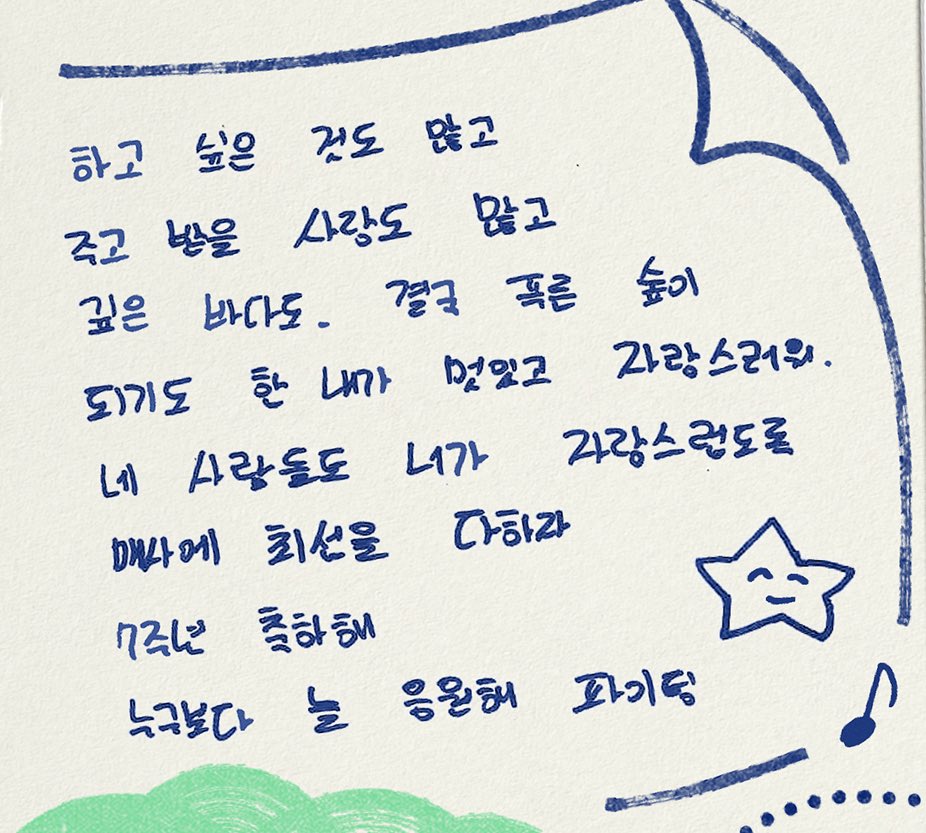 하고 싶은 것도 많고
주고 받을 사랑도 많고
깊은 바다도. 결국 푸른 숲이
되기도 한 내가 멋있고 자랑스러워.
네 사람들도 너가 자랑스럽도록
매사에 최선을 다하라
7주년 축하해
누구보다 늘 응원해 파이팅